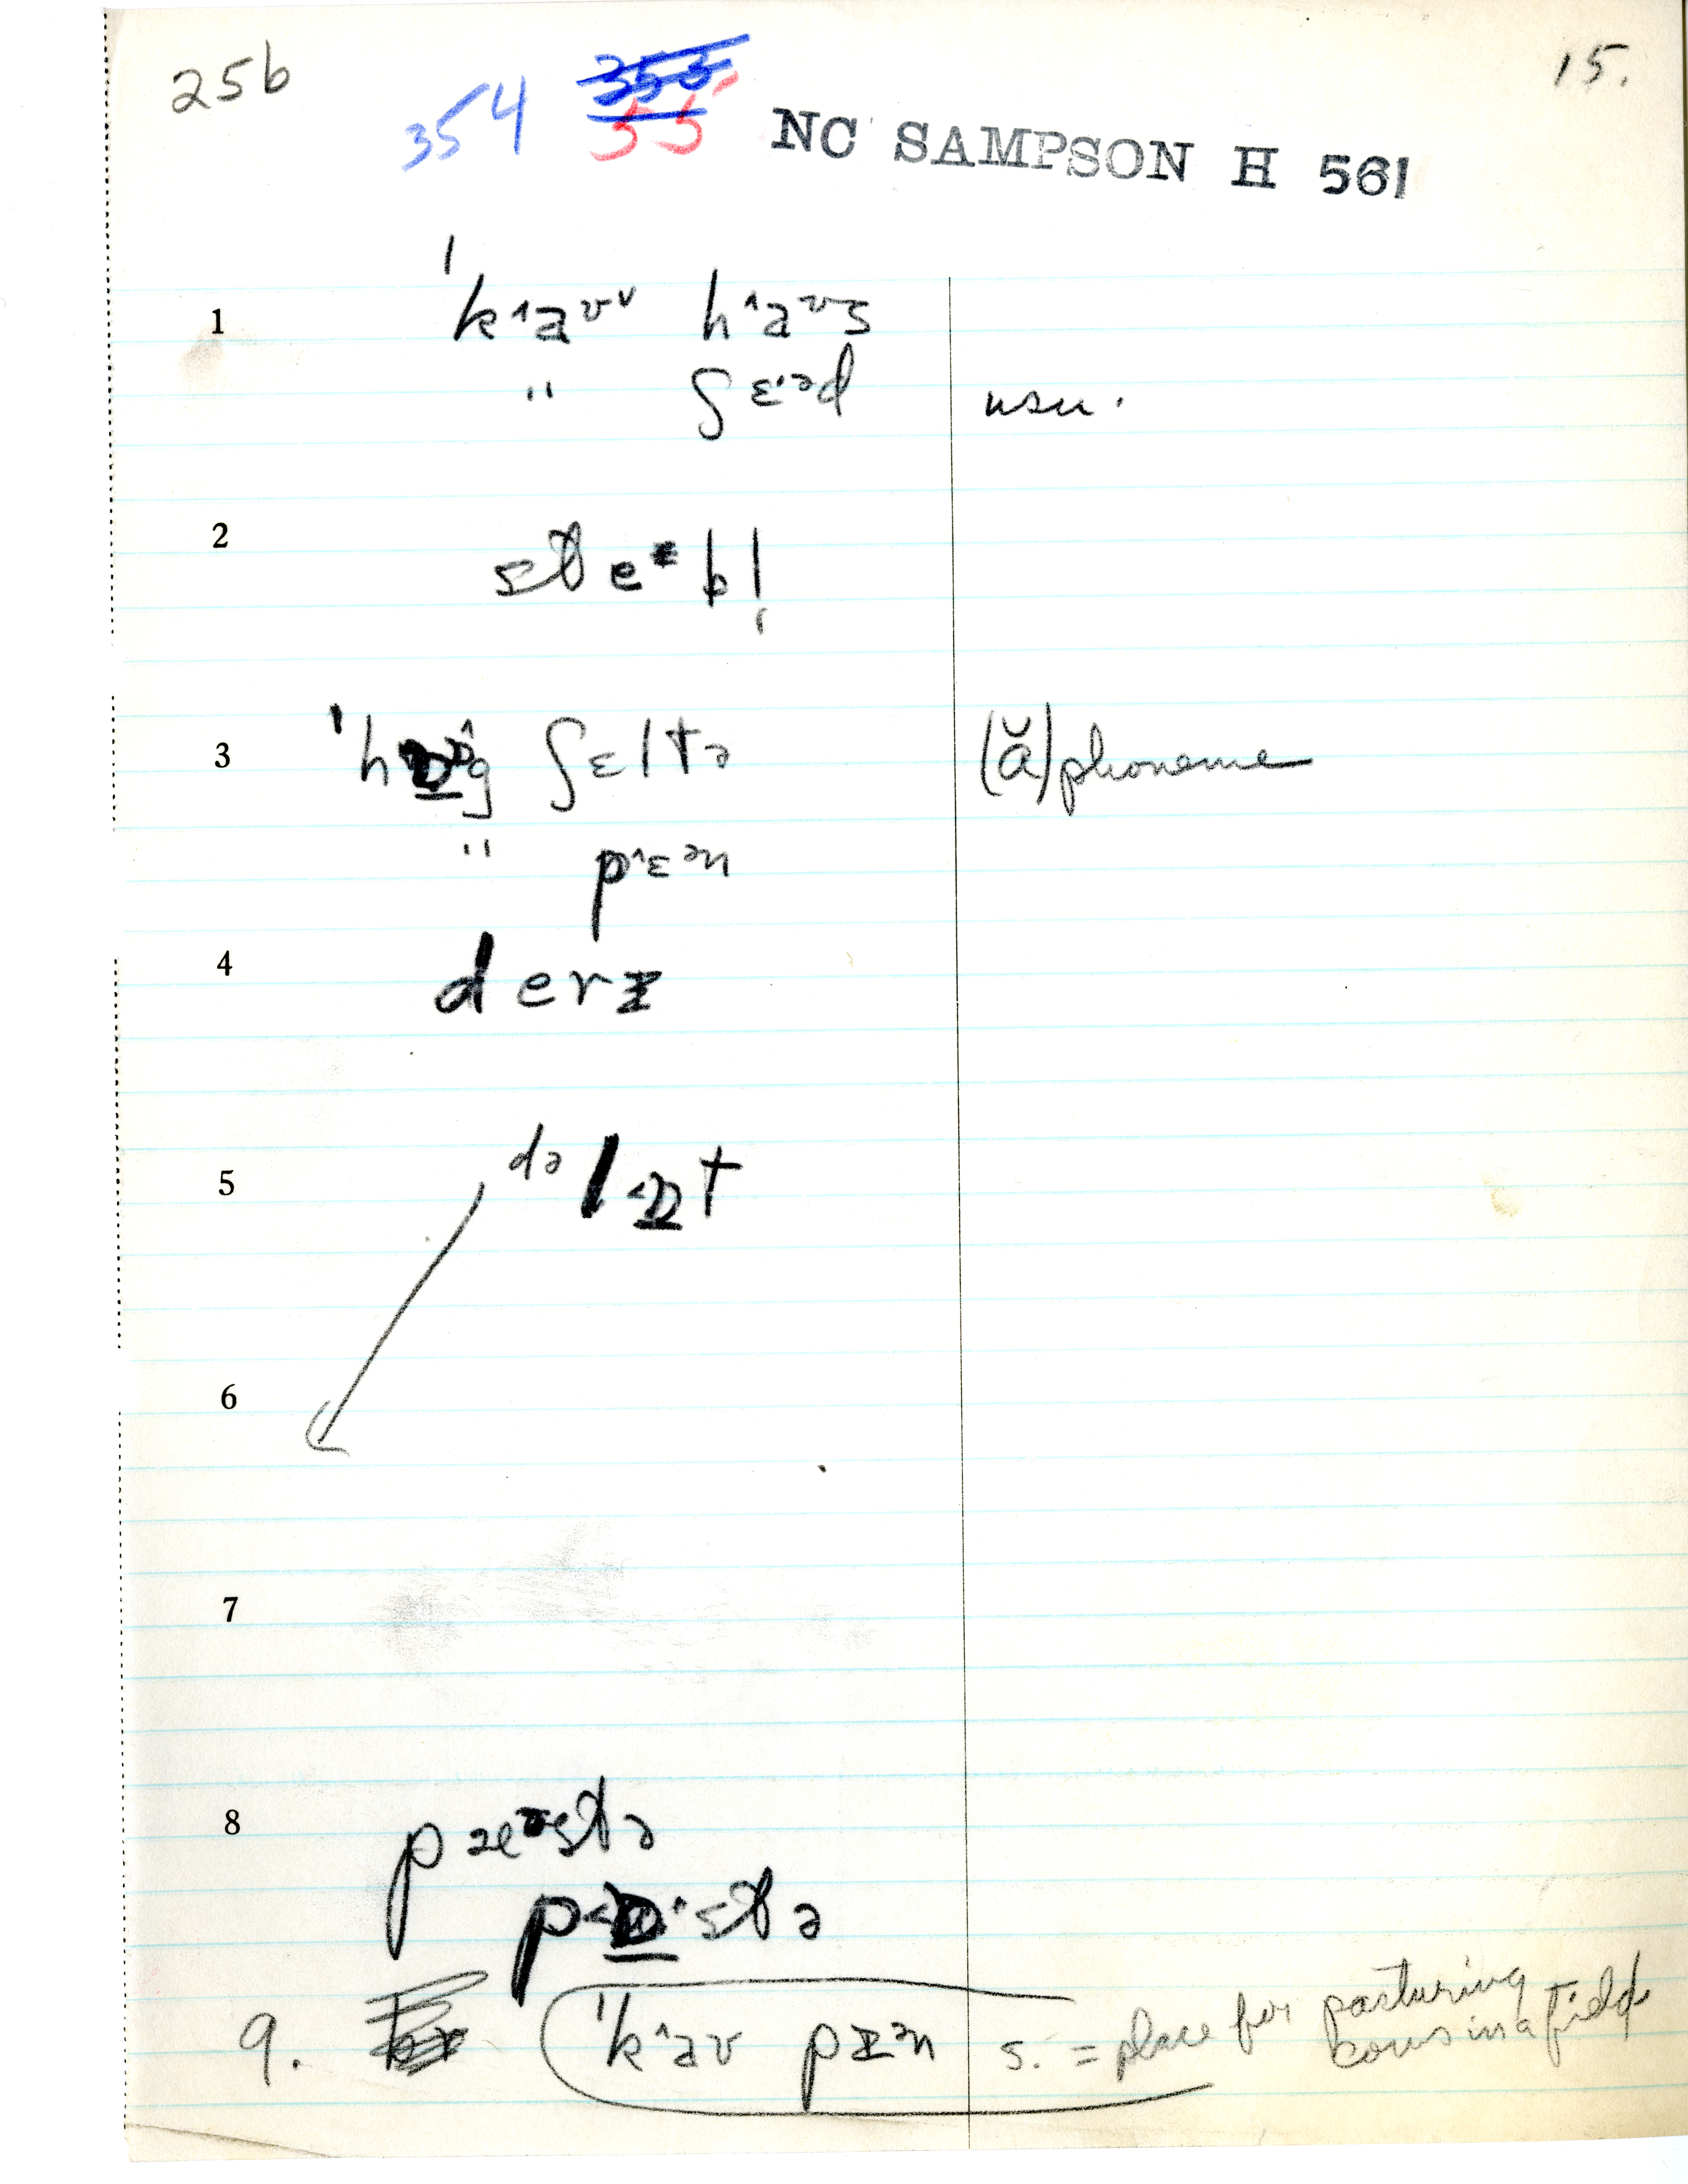 25b 354 353 55 NC SAMPSON H 561 15.
1 ˈk˄aʊᵛ h˄aʊs
" ʃɛ·ᵊd usu.
2 ste ᵻbl̩
3 ˈhɒg ʃɛltə (ă) phoneme
" p˄ɛᵊn
4 derɪ
5 də lɒt
6
7
8 pæstə
pɒstə
9. ˈk˄aʊ pɪᵊn s. = place for pasturing
cows in a field